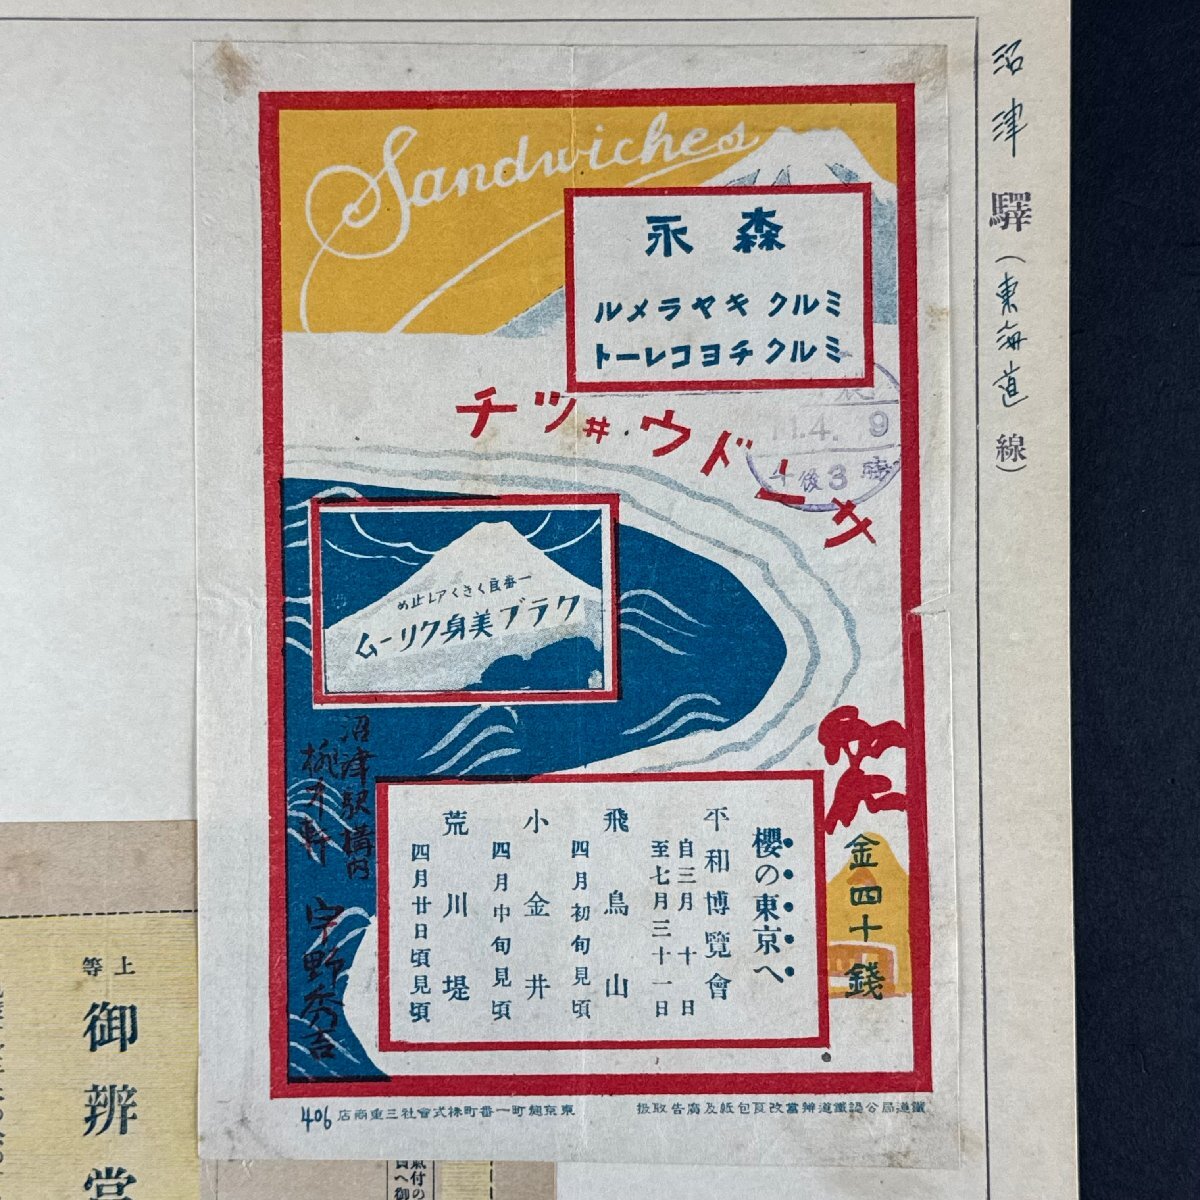 沼津驛(東海道線)
Sandwiches
森永
ミルクキヤラメル
ミルクチヨコレート
サードウ井ツチ
11.4.9
午後3時
一番良くきくアレ止め
クラブ美身クリーム
櫻の東京へ
平和博覽會
自三月十日
至七月三十一日
飛鳥山
四月初旬見頃
小金井
四月中旬見頃
荒川堤
四月廿日頃見頃
金四十錢
沼津駅構内
宇野秀吉
鐵道局公認鐵道辨當改良包紙及廣告取扱
東京麹町一番町株式會社三重商店
406
上等
御辨當